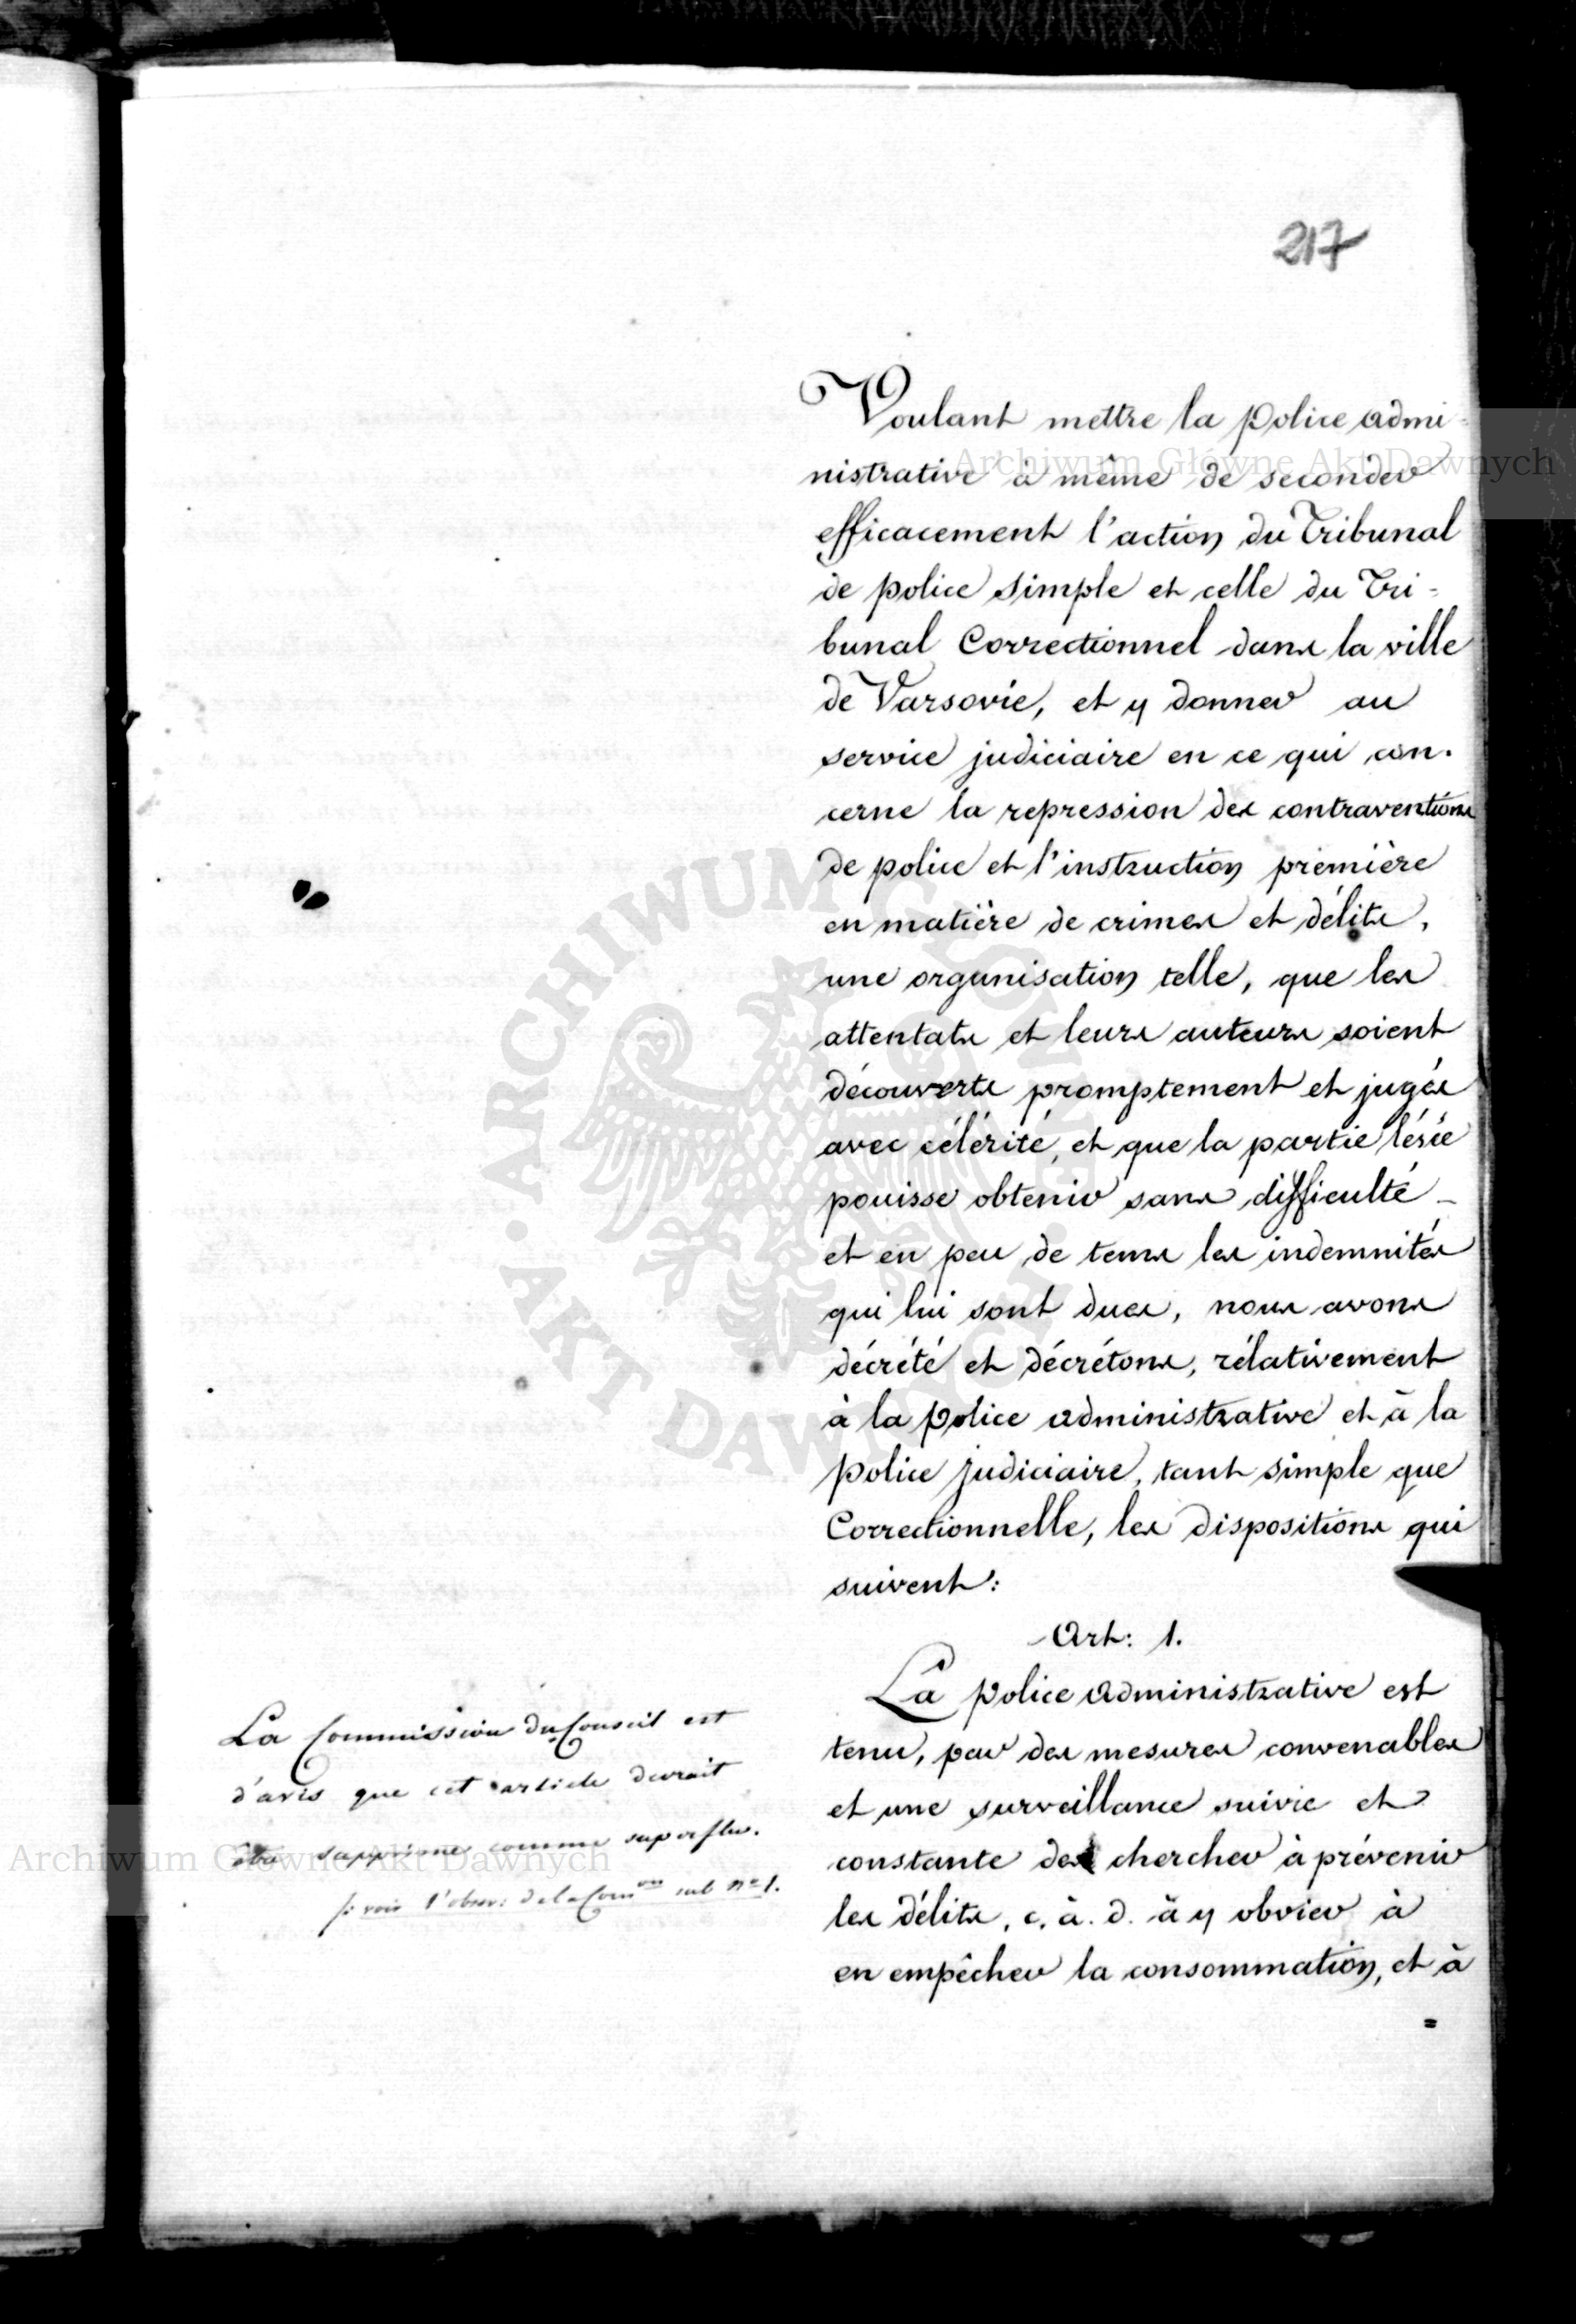 217
Voulant mettre la police admi-
nistrative à même de seconder
efficacement l'action du Tribunal
de police simple et celle du Tri-
bunal Correctionnel dans la ville
de Varsovie, et y donner au
service judiciaire en ce qui con-
cerne la repression des contraventions
de police et l'instruction première
en matière de crimes et délits,
une organisation telle, que les
attentats et leurs auteurs soient
découverts promptement et jugés
avec célérité, et que la partie lésée
pouisse obtenir sans difficulté -
et en peu de tems les indemnités
qui lui sont dues, nous avons
décrété et décrétons, rélativement
à la police administrative et à la
police judiciaire, tant simple que
Correctionnelle, les dispositions qui
suivent:
Art: 1.
La police administrative est
tenu, par des mesures convenables
et une surveillance suivie et
constante de chercher à prévenir
les délits, c. à. d. à y obvier à
en empêcher la consommation, et à
=
La Commission du Conseil est
d'avis que cet article devrait
être supprimé comme superflu.
/: voir l'obser: de la Com.on sub No 1.
Archiwum Główne Akt Dawnych
ARCHIWUM GŁÓWNE · AKT DAWNYCH ·
Archiwum Główne Akt Dawnych